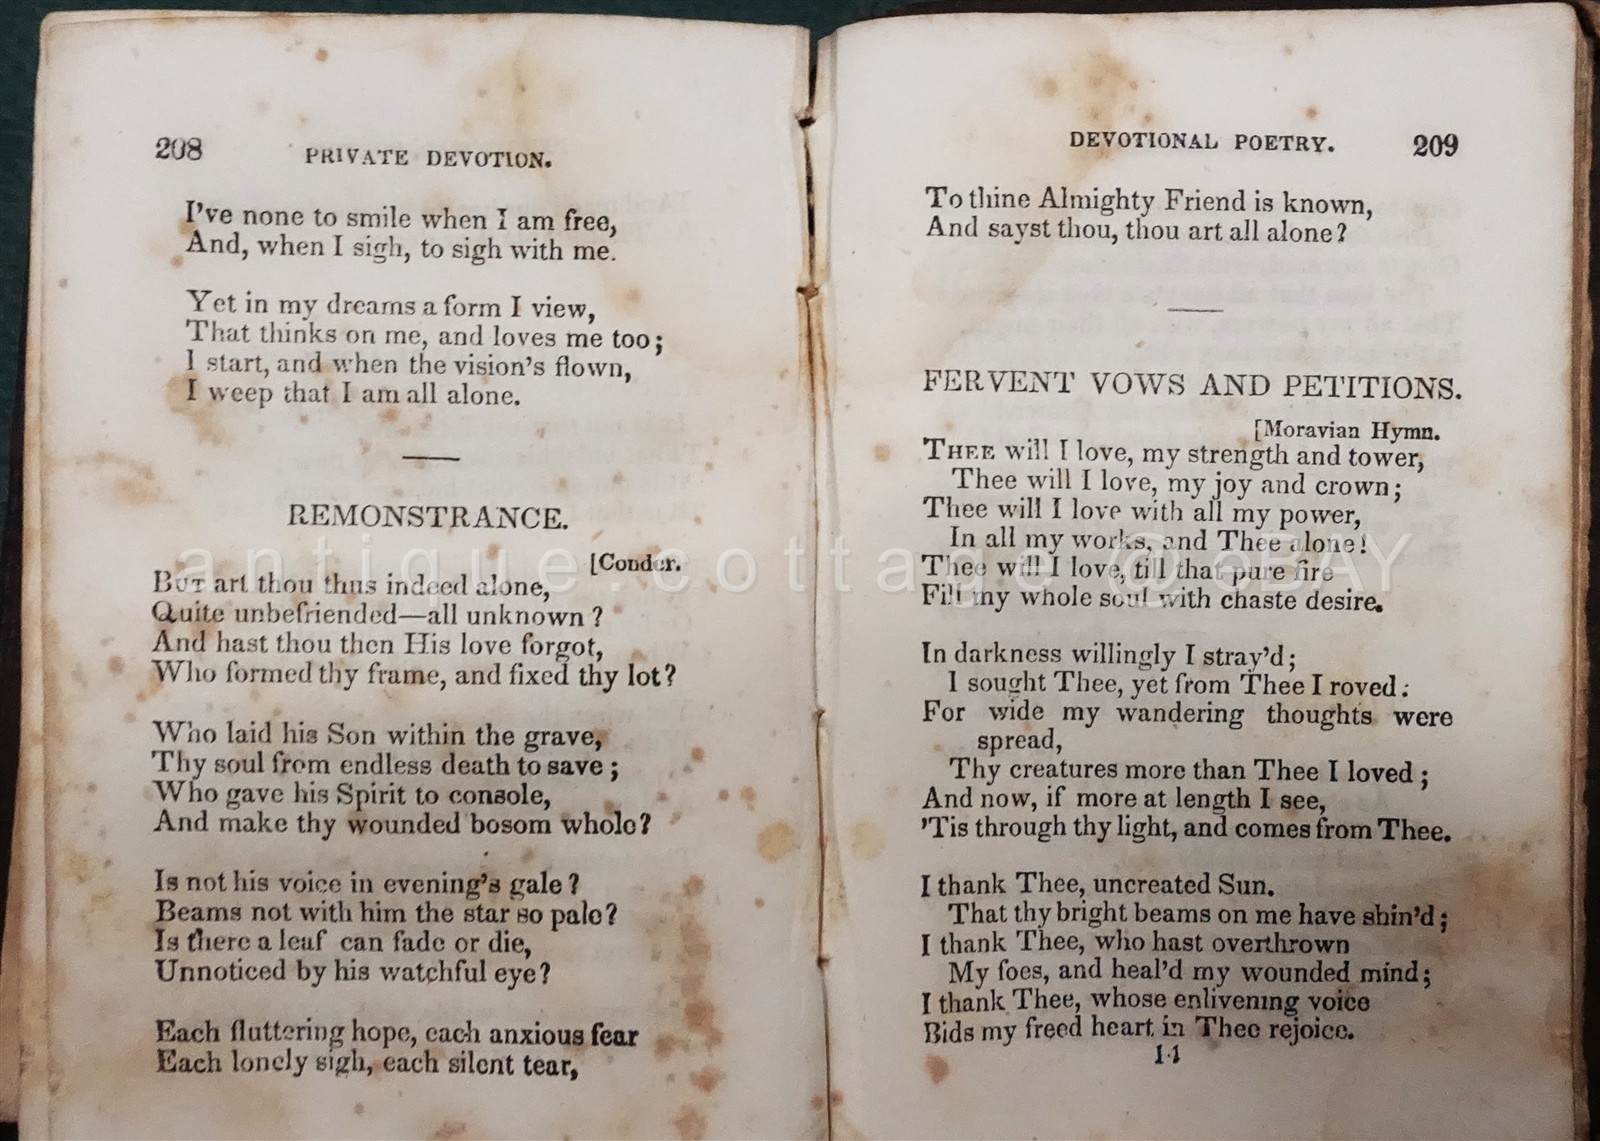 208
PRIVATE DEVOTION.
I've none to smile when I am free,
And, when I sigh, to sigh with me.
Yet in my dreams a form I view,
That thinks on me, and loves me too;
I start, and when the vision's flown,
I weep that I am all alone.
REMONSTRANCE.
[Conder.
BUT art thou thus indeed alone,
Quite unbefriended—all unknown?
And hast thou then His love forgot,
Who formed thy frame, and fixed thy lot?
Who laid his Son within the grave,
Thy soul from endless death to save;
Who gave his Spirit to console,
And make thy wounded bosom whole?
Is not his voice in evening's gale?
Beams not with him the star so pale?
Is there a leaf can fade or die,
Unnoticed by his watchful eye?
Each fluttering hope, each anxious fear
Each lonely sigh, each silent tear,
DEVOTIONAL POETRY.
209
To thine Almighty Friend is known,
And sayst thou, thou art all alone?
FERVENT VOWS AND PETITIONS.
[Moravian Hymn.
THEE will I love, my strength and tower,
Thee will I love, my joy and crown;
Thee will I love with all my power,
In all my works, and Thee alone!
Thee will I love, till that pure fire
Fill my whole soul with chaste desire.
In darkness willingly I stray'd;
I sought Thee, yet from Thee I roved:
For wide my wandering thoughts were
spread,
Thy creatures more than Thee I loved;
And now, if more at length I see,
'Tis through thy light, and comes from Thee.
I thank Thee, uncreated Sun.
That thy bright beams on me have shin'd;
I thank Thee, who hast overthrown
My foes, and heal'd my wounded mind;
I thank Thee, whose enlivening voice
Bids my freed heart in Thee rejoice.
14
antique.cottage @ eBAY